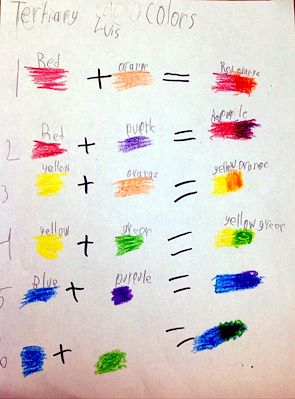 Tertiary Colors
Luis
1 Red + orange = Red orange
2 Red + purple =
3 yellow + orange = yellow orange
4 yellow + green = yellow green
5 Blue + purpule =
6 + =